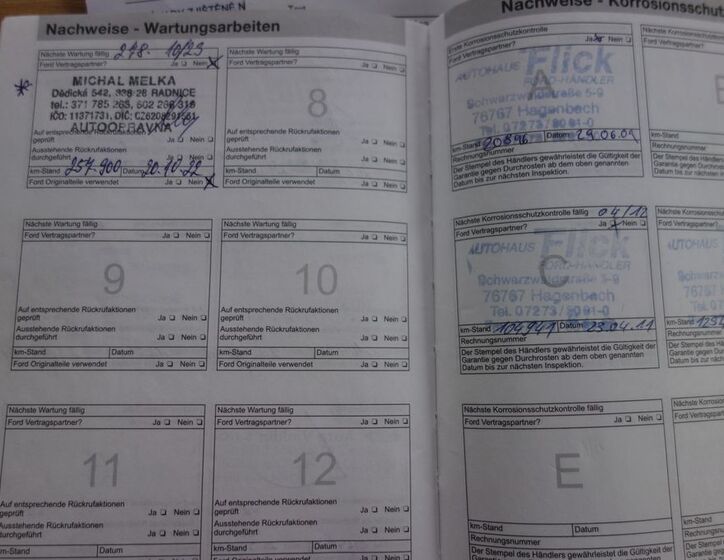 Nachweise - Wartungsarbeiten
Nächste Wartung fällig 278. 10/23
Ford Vertragspartner? Ja Nein
MICHAL MELKA
Dědická 542, 338 28 RADNICE
tel.: 371 785 265, 602 266 318
AUTOOPRAVNA
Auf entsprechende Rückrufaktionen
geprüft Ja Nein
Ausstehende Rückrufaktionen
durchgeführt Ja Nein
km-Stand 257.900 Datum 20.10.22
Ford Originalteile verwendet Ja Nein
Nächste Wartung fällig
Ford Vertragspartner? Ja Nein
8
Auf entsprechende Rückrufaktionen
geprüft Ja Nein
Ausstehende Rückrufaktionen
durchgeführt Ja Nein
km-Stand Datum
Ford Originalteile verwendet Ja Nein
Nächste Wartung fällig
Ford Vertragspartner? Ja Nein
9
Auf entsprechende Rückrufaktionen
geprüft Ja Nein
Ausstehende Rückrufaktionen
durchgeführt Ja Nein
km-Stand Datum
Ford Originalteile verwendet Ja Nein
Nächste Wartung fällig
Ford Vertragspartner? Ja Nein
10
Auf entsprechende Rückrufaktionen
geprüft Ja Nein
Ausstehende Rückrufaktionen
durchgeführt Ja Nein
km-Stand Datum
Ford Originalteile verwendet Ja Nein
Nächste Wartung fällig
Ford Vertragspartner? Ja Nein
11
Auf entsprechende Rückrufaktionen
geprüft Ja Nein
Ausstehende Rückrufaktionen
durchgeführt Ja Nein
km-Stand Datum
Nächste Wartung fällig
Ford Vertragspartner? Ja Nein
12
Auf entsprechende Rückrufaktionen
geprüft Ja Nein
Ausstehende Rückrufaktionen
durchgeführt Ja Nein
km-Stand Datum
Ford Originalteile verwendet Ja Nein
Nachweise - Korrosionsschut
Erste Korrosionsschutzkontrolle
Ford Vertragspartner? Ja Nein
A
AUTOHAUS Flick
FORD-HÄNDLER
Schwarzwaldstraße 5-9
76767 Hagenbach
Tel. 07273 / 8091-0
km-Stand 20896 Datum 29.06.09
Rechnungsnummer
Der Stempel des Händlers gewährleistet die Gültigkeit der
Garantie gegen Durchrosten ab dem oben genannten
Datum bis zur nächsten Inspektion.
Nächste Korrosionsschutzkontrolle fällig 04/12
Ford Vertragspartner? Ja Nein
C
AUTOHAUS Flick
FORD-HÄNDLER
Schwarzwaldstraße 5-9
76767 Hagenbach
Tel. 07273 / 8091-0
km-Stand 104941 Datum 23.04.11
Rechnungsnummer
Der Stempel des Händlers gewährleistet die Gültigkeit der
Garantie gegen Durchrosten ab dem oben genannten
Datum bis zur nächsten Inspektion.
Nächste Korrosionsschutzkontrolle fällig
Ford Vertragspartner? Ja Nein
E
km-Stand Datum
Rechnungsnummer
Der Stempel des Händlers gewährleistet die Gültigkeit der
Garantie gegen Durchrosten ab dem oben genannten